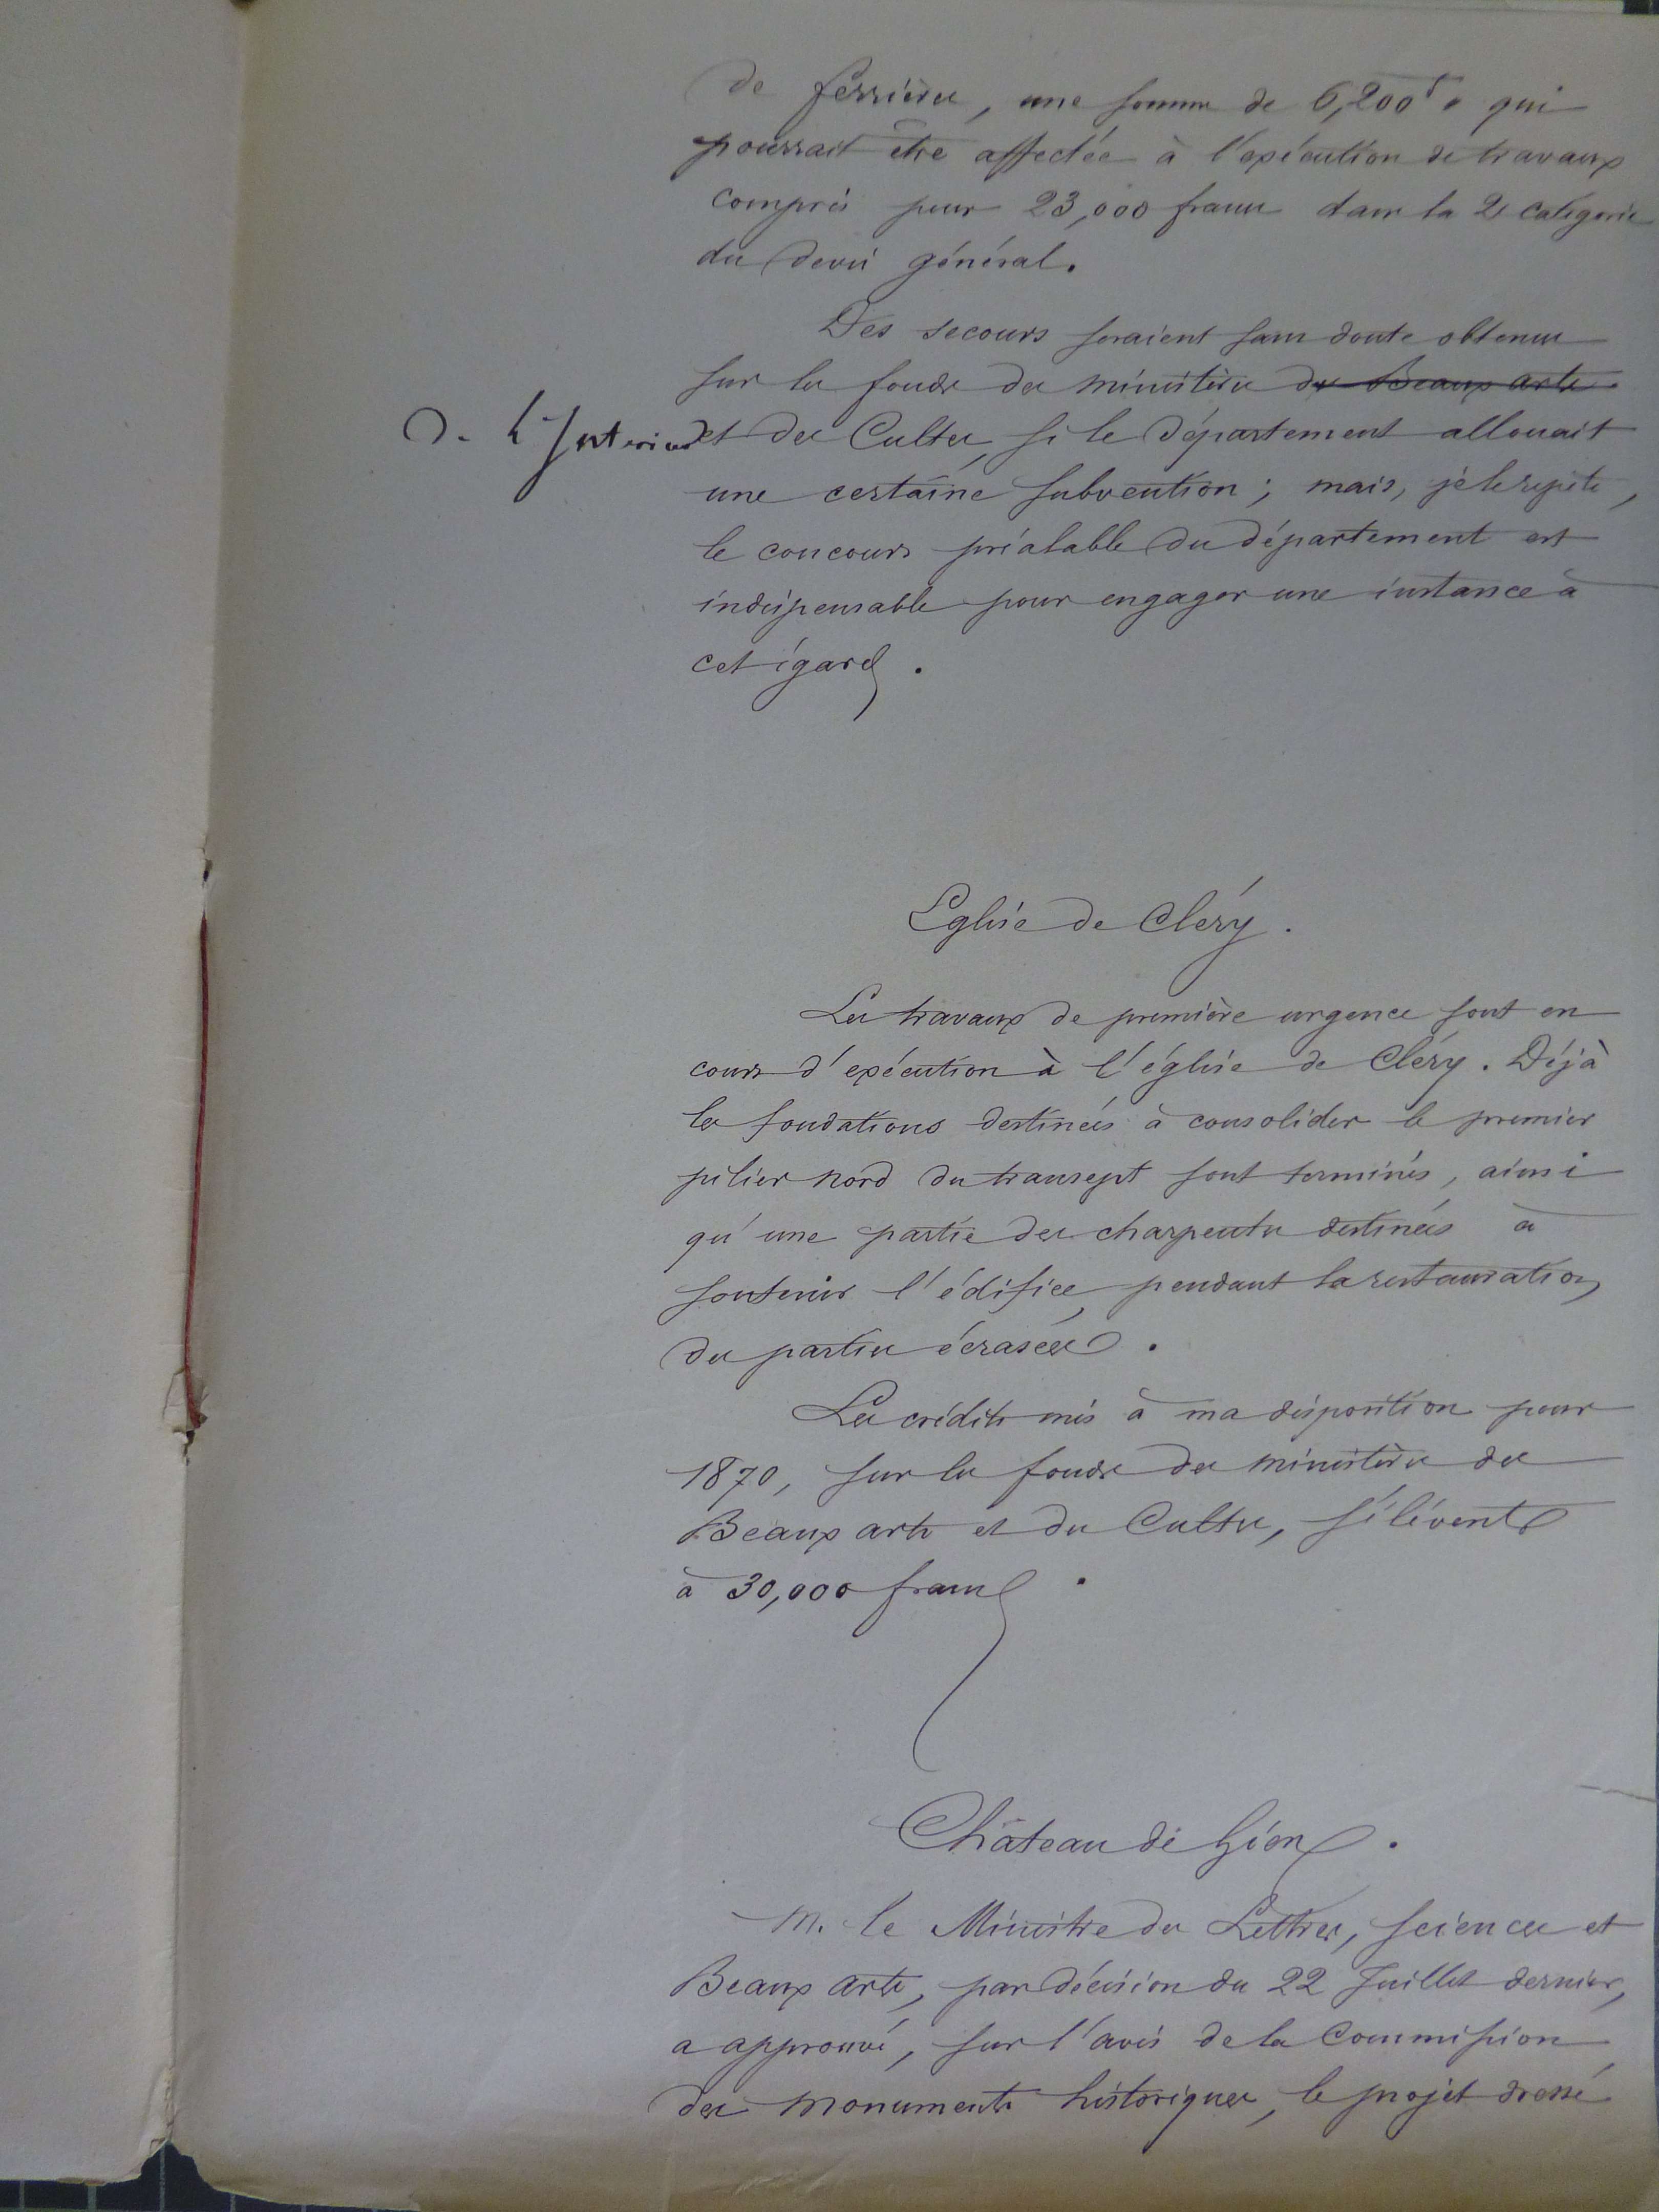 de ferrières, une somme de 6,200f " qui
pourrait être affectée à l'exécution de travaux
compris pour 23,000 francs dans la 2e catégorie
du devis général.
Des secours seraient sans doute obtenus
sur les fonds des ministères des Beaux arts
De l'Intérieur et des Cultes, si le département allouait
une certaine subvention ; mais, je le répète,
le concours préalable du département est
indispensable pour engager une instance à
cet égard.
Eglise de Cléry.
Les travaux de première urgence sont en
cours d'exécution à l'église de Cléry. Déjà
les fondations destinées à consolider le premier
pilier nord du transept sont terminés, ainsi
qu'une partie des charpentes destinées à
soutenir l'édifice, pendant la restauration
des parties écrasées.
Les crédits mis à ma disposition pour
1870, sur les fonds des ministères des
Beaux arts et des Cultes, s'élèvent
à 30,000 francs.
Château de Gien.
M. le Ministre des Lettres, sciences et
Beaux arts, par décision du 22 Juillet dernier,
a approuvé, sur l'avis de la Commission
des monuments historiques, le projet dressé